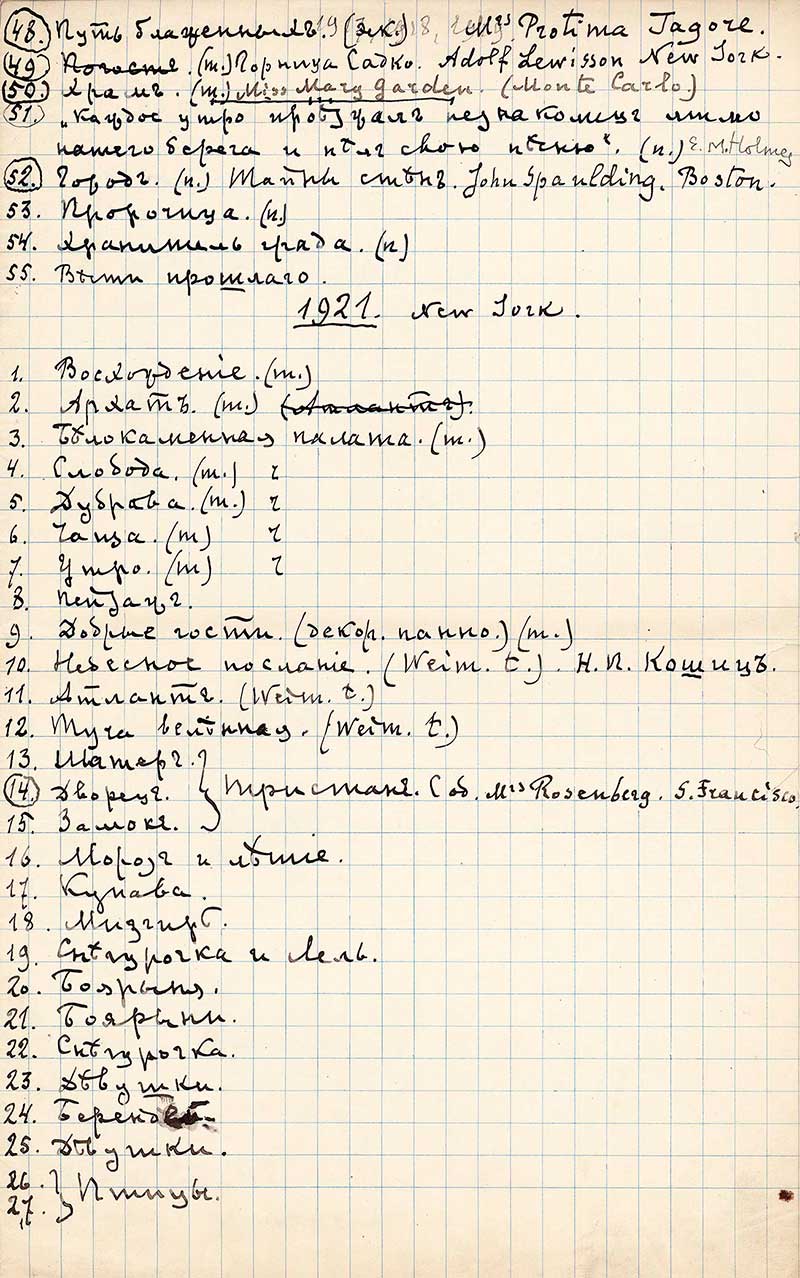 48. Путь блаженнымъ. (эк.) Mrs Protima Tagore.
49. Погостъ. (т.) Горница Садко. Adolf Lewisson New York.
50. Храмъ. (т.) Miss Mary Garden. (Monte Carlo)
51. „Каждое утро проѣзжалъ незнакомецъ мимо
нашего берега и пѣлъ свою пѣсню". (п.) E. M. Holmes
52. Городъ. (п.) Тайны стѣнъ. John Spaulding, Boston.
53. Пророчица. (п.)
54. Хранитель града. (п)
55. Вѣсти прошлаго.
1921. New York.
1. Восхожденіе. (т.)
2. Архатъ. (т.) (Атлантъ).
3. Бѣлокаменная палата. (т.)
4. Слобода. (т.) ч
5. Дубрава. (т.) ч
6. Чаща. (т) ч
7. Утро. (т) ч
8. Пейзажъ.
9. Добрые гости. (декор. панно.) (т.)
10. Небесное посланіе. (Weim. t.). Н. П. Кошицъ.
11. Атлантъ. (Weim. t.)
12. Туча велѣнная. (Weim. t.)
13. Шатеръ.
14. Дворецъ. } Тристанъ. Соб. Mrs Rosenberg. S. Francisco,
15. Замокъ.
16. Морозъ и лѣшіе.
17. Купава.
18. Мизгирь.
19. Снѣгурочка и Лель.
20. Боярыня.
21. Боярыни.
22. Снѣгурочка.
23. Дѣвушки.
24. Берендей.
25. Дѣвушки.
26. } Птицы.
27.